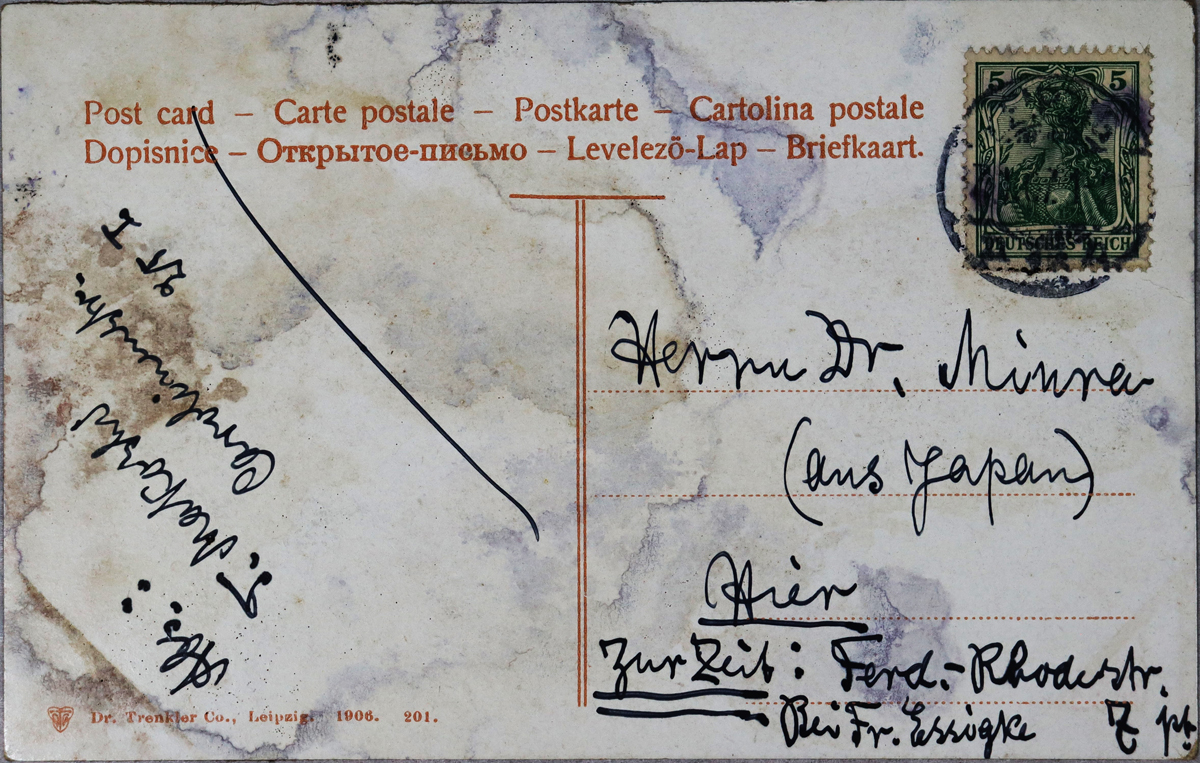 Post card – Carte postale – Postkarte – Cartolina postale
Dopisnice – Открытое-письмо – Levelező-Lap – Briefkaart.
5 5
DEUTSCHES REICH
Herrn Dr. Miura
(aus Japan)
Hier
Zur Zeit: Ferd.-Rhodestr.
Bei Fr. Essigke 7 pt.
Abs.:
I.
25 I
Dr. Trenkler Co., Leipzig. 1906. 201.